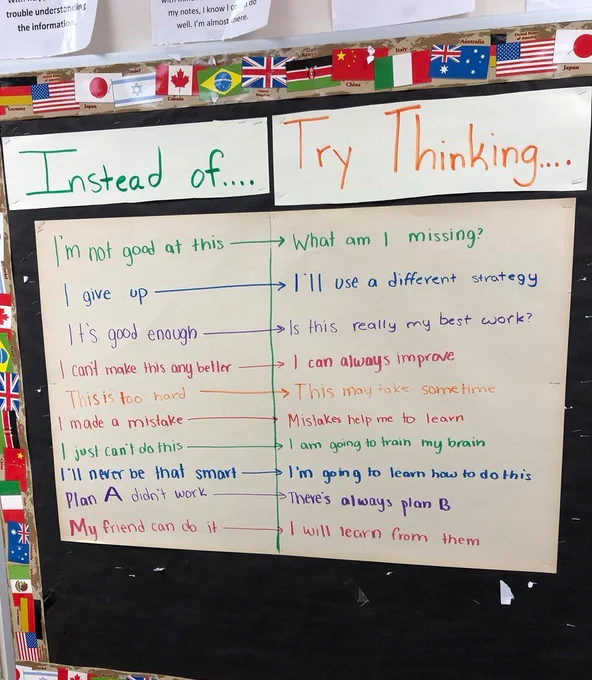 trouble understanding
the information.
my notes, I know I could do
well. I'm almost there.
Germany
Japan
Israel
Canada
United Kingdom
Kenya
China
Italy
Australia
United States of America
Japan
Instead of....
Try Thinking....
I'm not good at this → What am I missing?
I give up → I'll use a different strategy
It's good enough → Is this really my best work?
I can't make this any better → I can always improve
This is too hard → This may take sometime
I made a mistake → Mistakes help me to learn
I just can't do this → I am going to train my brain
I'll never be that smart → I'm going to learn how to do this
Plan A didn't work → There's always plan B
My friend can do it → I will learn from them